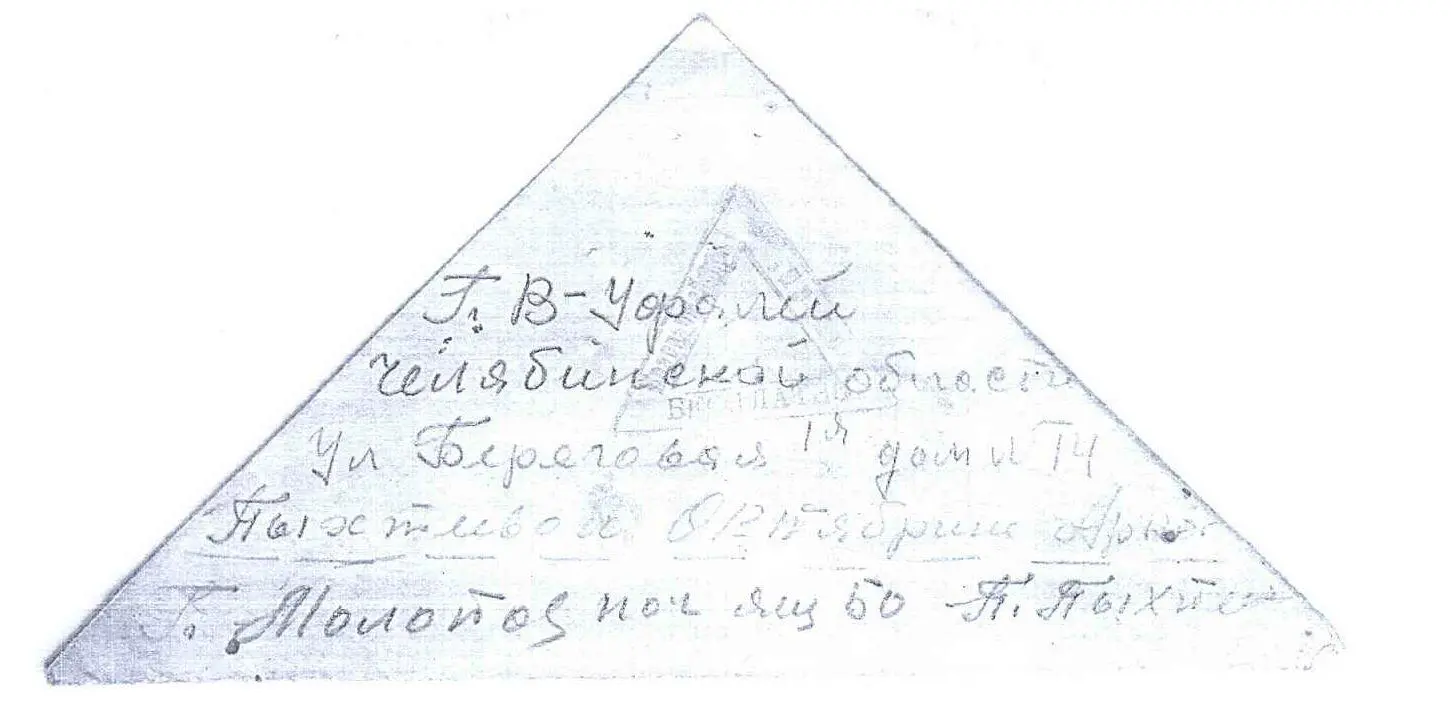 Г. В-Уфалей
Челябинской области
Ул Береговая 1я дом №
Пыхтивой Октябрини
Г. Молотов поч ящ 50 П.
БЕСПЛАТНО